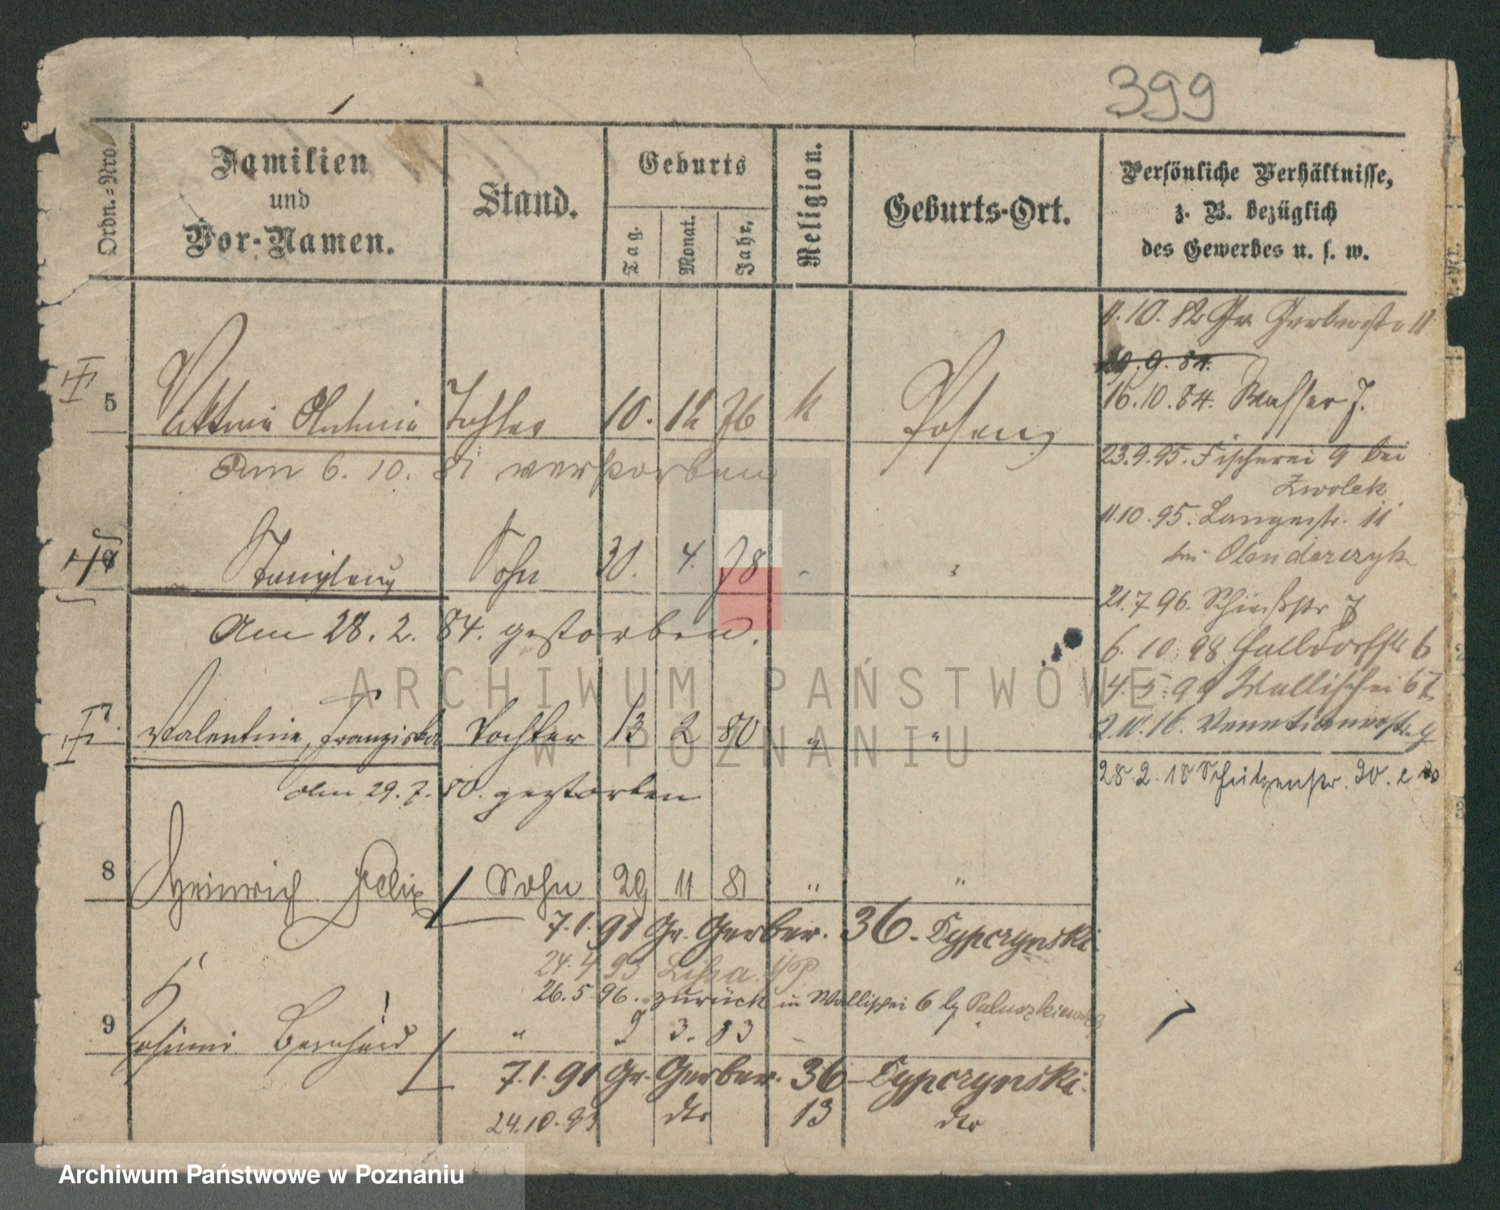 399
Ordn.-Nro.
Familien
und
Vor-Namen.
Stand.
Geburts
Tag.
Monat.
Jahr.
Religion.
Geburts-Ort.
Persönliche Verhältnisse,
z. B. bezüglich
des Gewerbes u. s. w.
11.10.82 Gr. Gerberstr 11
29.9.84.
16.10.84. Wasser 7.
5 Antonie Tochter 10. 12 76 k Posen
Am 6. 10. 81 verstorben
23.9.95. Fischerei 9 bei
Zwolek
11.10.95. Langestr. 11
bei Olenderczyk
Sohn 30. 4. 78 "
21.7.96. Schießstr 7
Am 28. 2. 84. gestorben.
6. 10. 98 Halldorfstr 6
4. 5. 99 Wallischei 67
7. Valentine, Franziska Tochter 13 2 80 " "
2.11.16. Venetianerstr.
28.2.18 Schützenstr. 20.
Am 29. 7. 80. gestorben
8 Heinrich Felix Sohn 29 11 81 " "
7.1.91 Gr. Gerber. 36 - Cypczynski.
24.4.93 Lissa
26.5.96. zurück in Wallischei 6
9 Bernhard " 9 3. 83
7.1.91 Gr. Gerber. 36 - Cypczynski.
24.10.93 dto 13 dto
ARCHIWUM PAŃSTWOWE
W POZNANIU
Archiwum Państwowe w Poznaniu